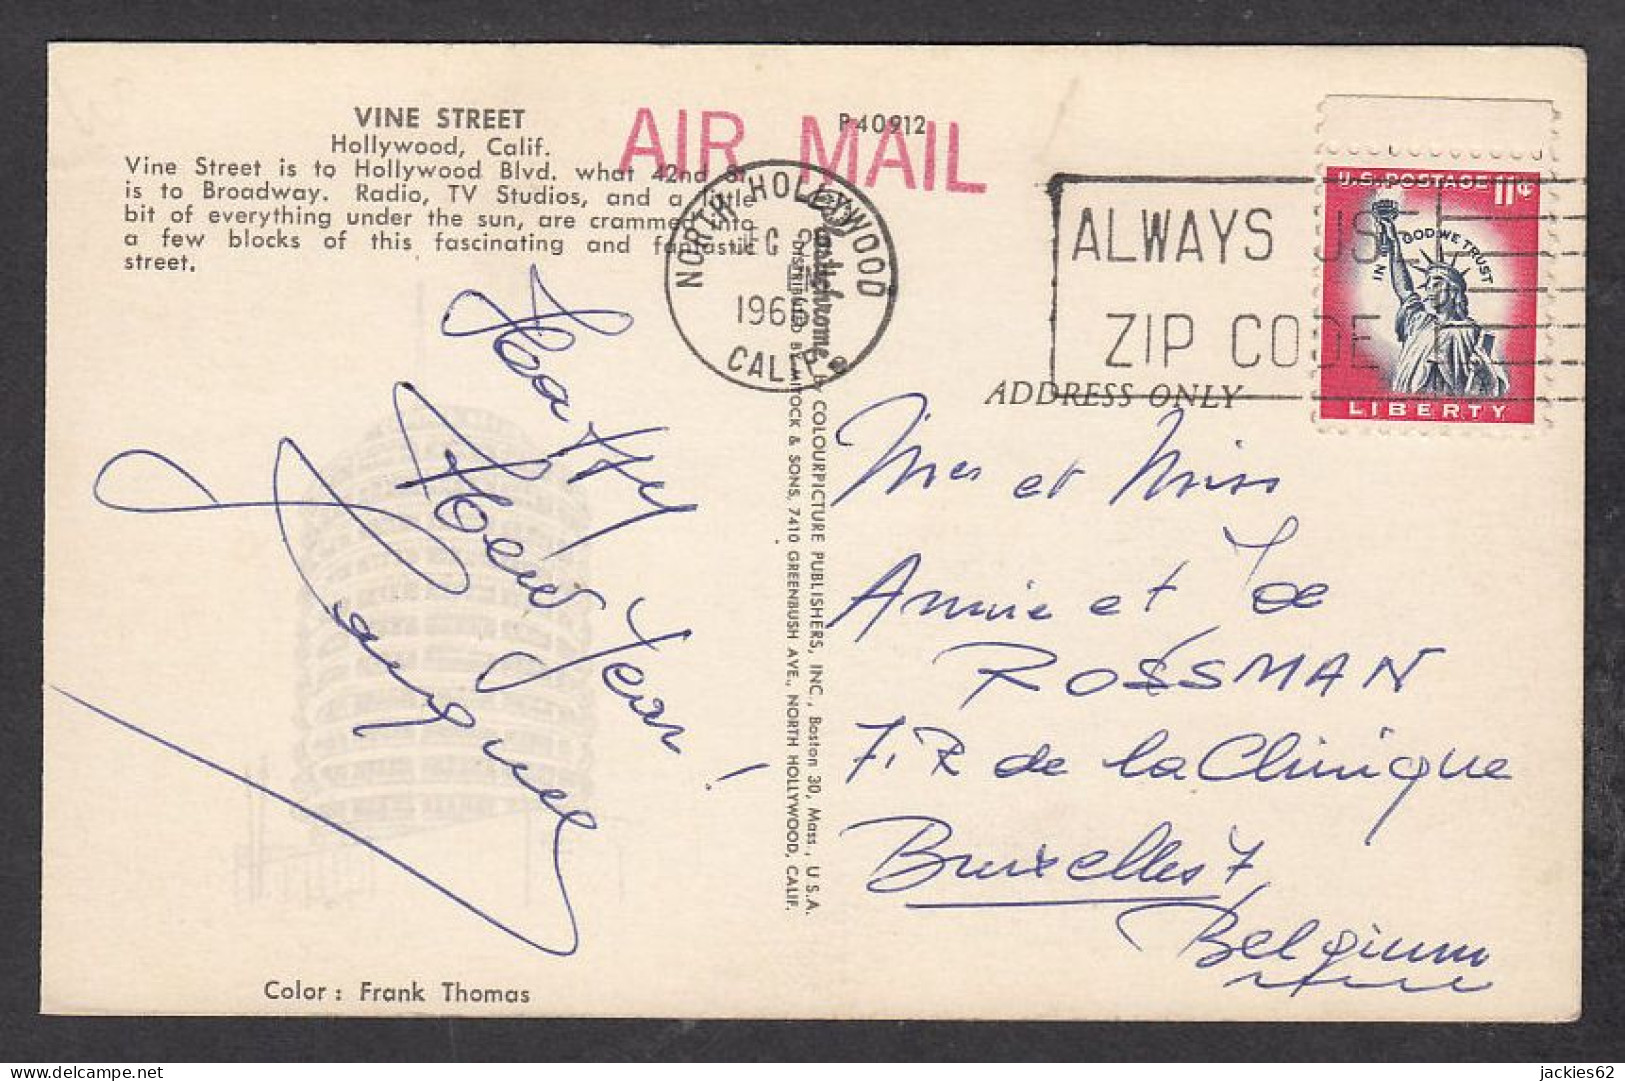 VINE STREET
Hollywood, Calif.
Vine Street is to Hollywood Blvd. what 42nd St.
is to Broadway. Radio, TV Studios, and a little
bit of everything under the sun, are crammed into
a few blocks of this fascinating and fantastic
street.
P40912
AIR MAIL
NORTH HOLLYWOOD
1966
CALIF.
ALWAYS USE
ZIP CODE
U.S. POSTAGE 11¢
IN GOD WE TRUST
LIBERTY
ADDRESS ONLY
Plastichrome
DISTRIBUTED BY MITOCK & SONS, 7410 GREENBUSH AVE., NORTH HOLLYWOOD, CALIF.
COLOURPICTURE PUBLISHERS, INC., Boston 30, Mass., U.S.A.
Happy
New Year!
et Miss
Annie et
ROSSMAN
7, R de la Clinique
Bruxelles 7,
Belgium
Color: Frank Thomas
jackies62